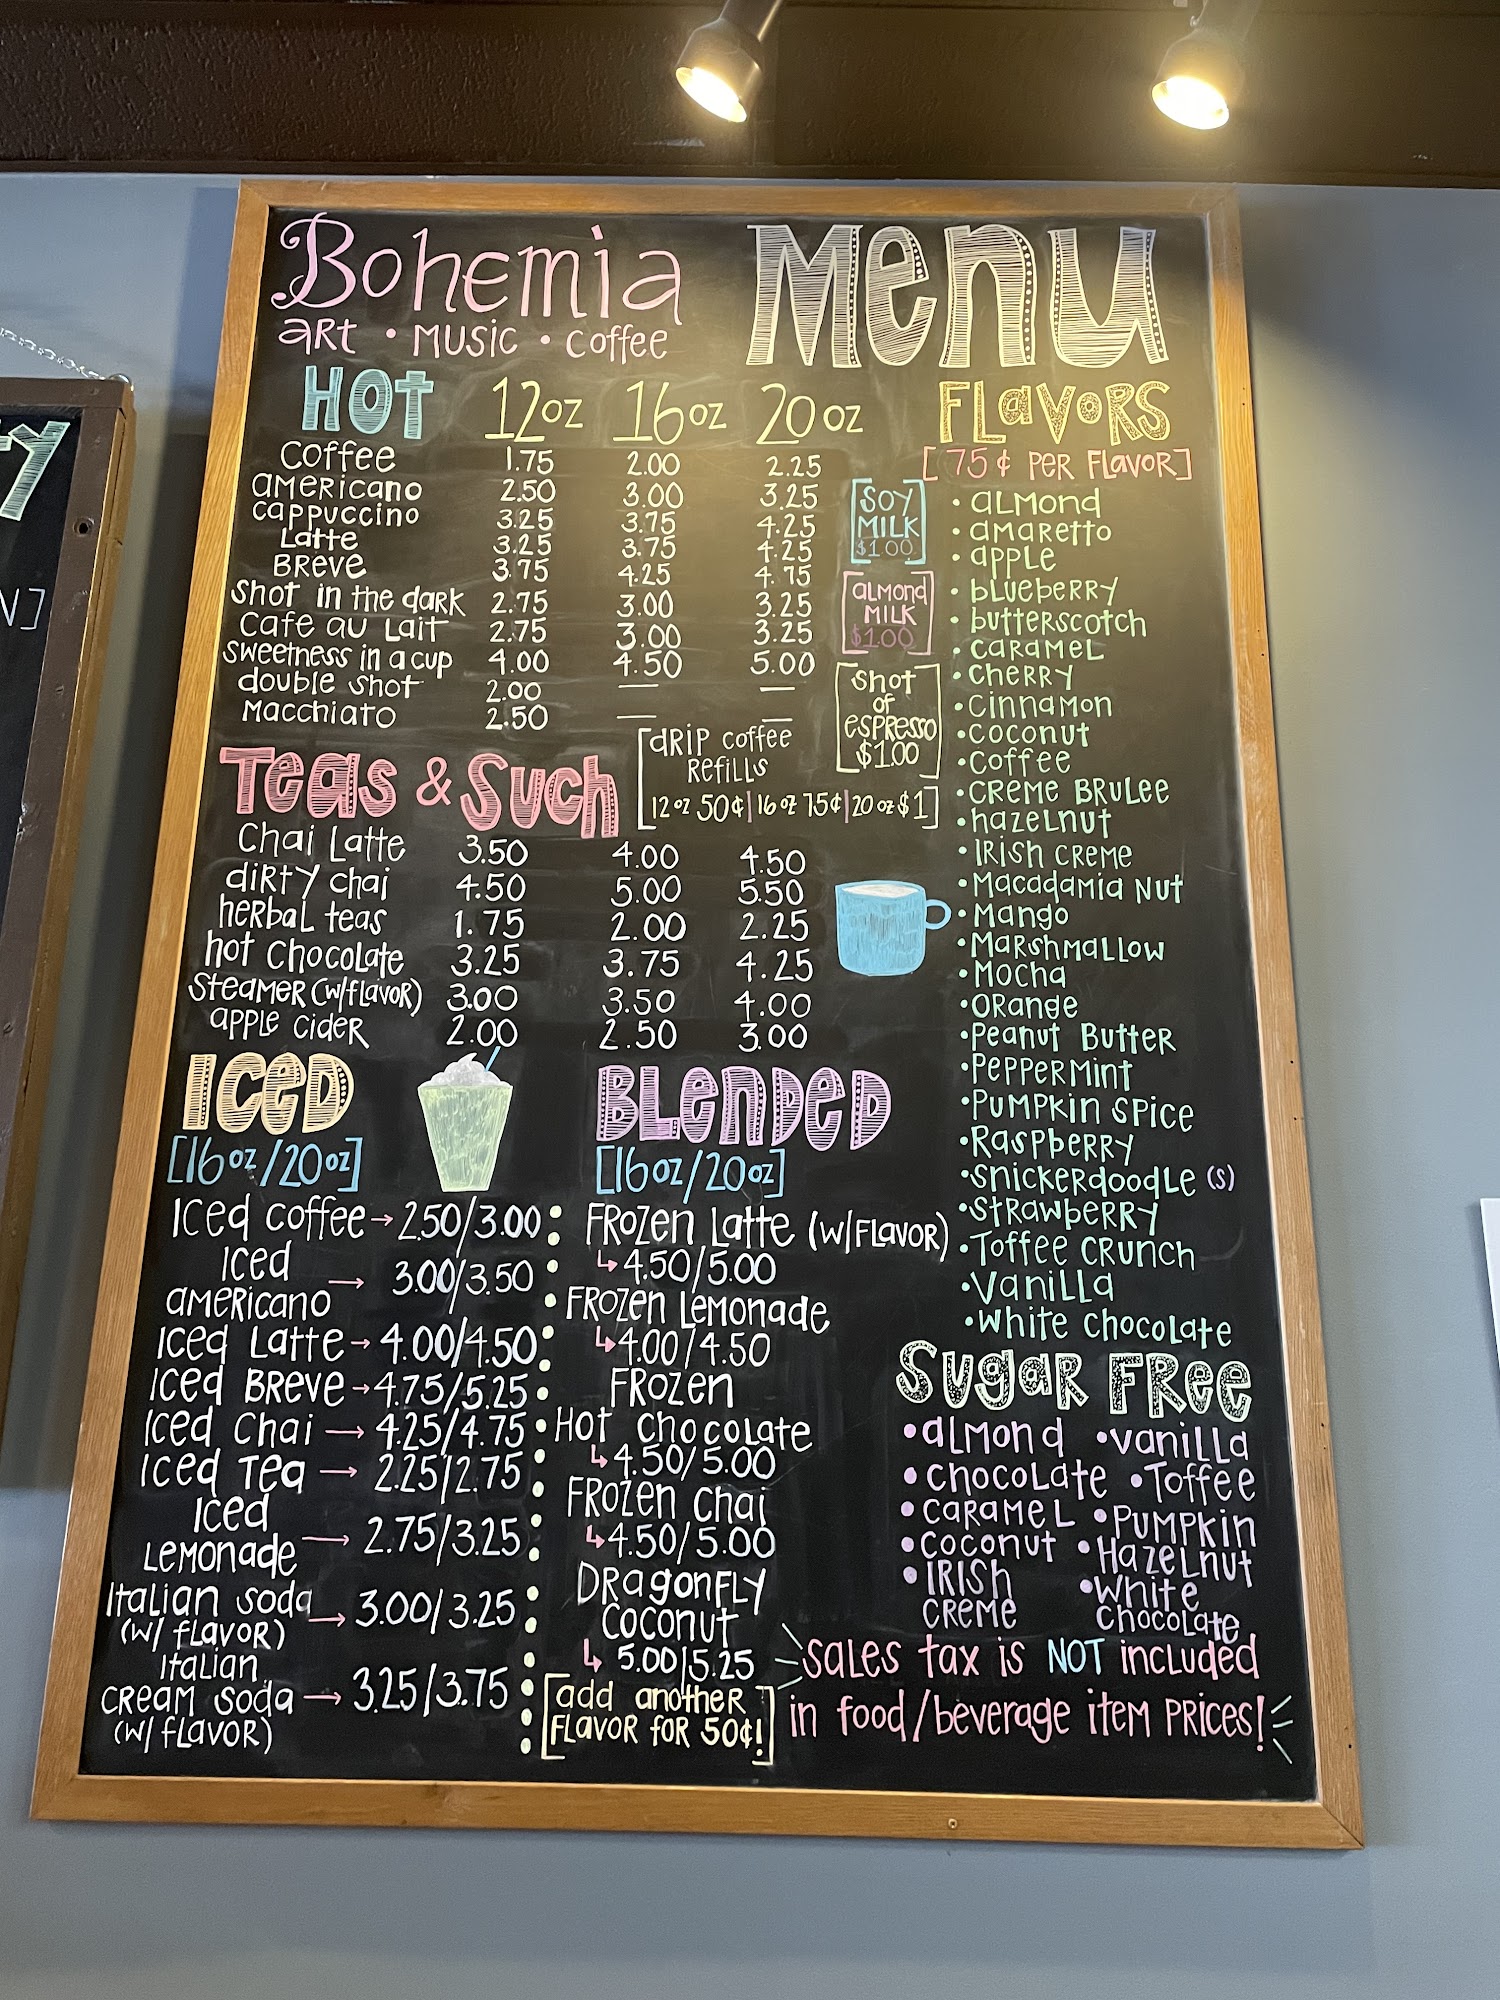 Bohemia
art • music • coffee
Menu
Hot 12oz 16oz 20oz
Coffee 1.75 2.00 2.25
americano 2.50 3.00 3.25
cappuccino 3.25 3.75 4.25
Latte 3.25 3.75 4.25
Breve 3.75 4.25 4.75
Shot in the dark 2.75 3.00 3.25
Cafe au Lait 2.75 3.00 3.25
Sweetness in a cup 4.00 4.50 5.00
double shot 2.00 — —
Macchiato 2.50 — —
[drip coffee
Refills
12oz 50¢|16oz 75¢|20oz $1]
[Soy
Milk
$1.00]
[almond
Milk
$1.00]
[Shot
of
espresso
$1.00]
Teas & Such
Chai Latte 3.50 4.00 4.50
dirty chai 4.50 5.00 5.50
herbal teas 1.75 2.00 2.25
hot chocolate 3.25 3.75 4.25
Steamer (w/flavor) 3.00 3.50 4.00
apple cider 2.00 2.50 3.00
Iced
[16oz/20oz]
Iced coffee → 2.50/3.00
Iced
americano → 3.00/3.50
Iced Latte → 4.00/4.50
Iced Breve → 4.75/5.25
Iced Chai → 4.25/4.75
Iced Tea → 2.25/2.75
Iced
Lemonade → 2.75/3.25
Italian soda
(w/ flavor) → 3.00/3.25
Italian
cream soda → 3.25/3.75
(w/ flavor)
Blended
[16oz/20oz]
Frozen Latte (w/flavor)
↳ 4.50/5.00
Frozen Lemonade
↳ 4.00/4.50
Frozen
Hot Chocolate
↳ 4.50/5.00
Frozen Chai
↳ 4.50/5.00
Dragonfly
Coconut
↳ 5.00|5.25
[add another
flavor for 50¢!]
Flavors
[75¢ per flavor]
• almond
• amaretto
• apple
• blueberry
• butterscotch
• caramel
• cherry
• cinnamon
• coconut
• coffee
• creme brulee
• hazelnut
• Irish creme
• Macadamia Nut
• Mango
• Marshmallow
• Mocha
• orange
• Peanut Butter
• Peppermint
• Pumpkin spice
• Raspberry
• snickerdoodle (s)
• strawberry
• Toffee crunch
• Vanilla
• white chocolate
Sugar Free
• almond • vanilla
• chocolate • Toffee
• caramel • Pumpkin
• coconut • Hazelnut
• Irish
creme
• White
chocolate
sales tax is NOT included
in food/beverage item prices!
y
N]